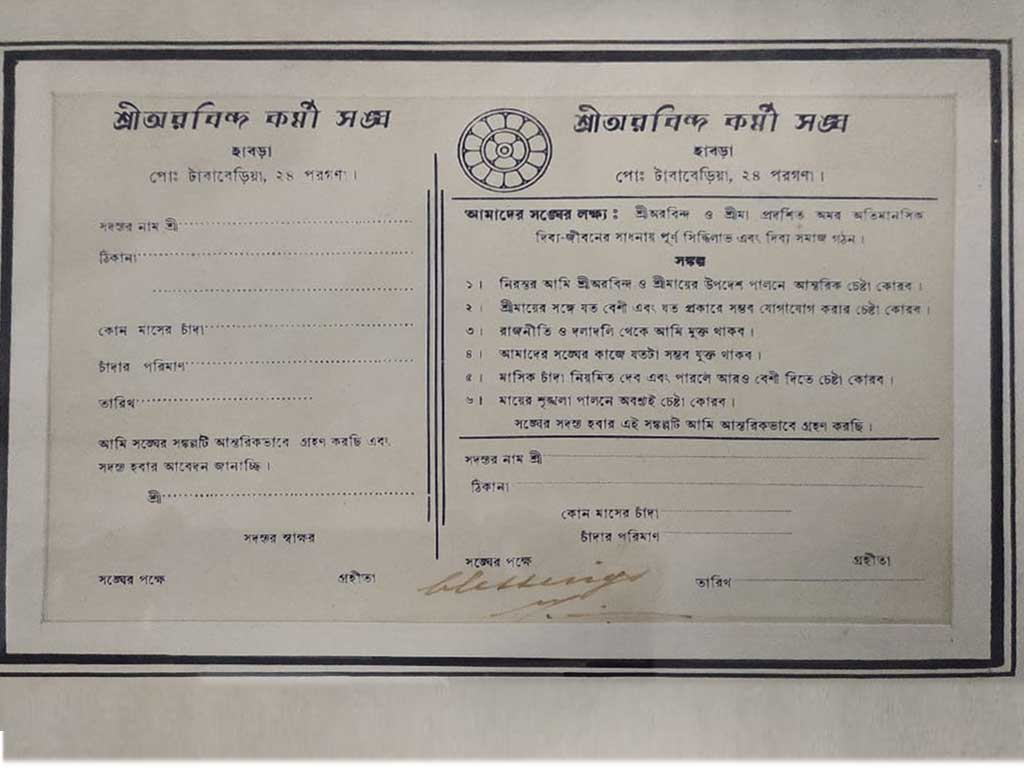 শ্রীঅরবিন্দ কর্ম্মী সঙ্ঘ
হাবড়া
পোঃ টাবাবেড়িয়া, ২৪ পরগণা।
সদস্যের নাম শ্রী
ঠিকানা
কোন মাসের চাঁদা
চাঁদার পরিমাণ
তারিখ
আমি সঙ্ঘের সঙ্কল্পটি আন্তরিকভাবে গ্রহণ করছি এবং
সদস্য হবার আবেদন জানাচ্ছি।
শ্রী
সদস্যের স্বাক্ষর
সঙ্ঘের পক্ষে গ্রহীতা
শ্রীঅরবিন্দ কর্ম্মী সঙ্ঘ
হাবড়া
পোঃ টাবাবেড়িয়া, ২৪ পরগণা।
আমাদের সঙ্ঘের লক্ষ্য : শ্রীঅরবিন্দ ও শ্রীমা প্রদর্শিত অমর অতিমানসিক
দিব্য-জীবনের সাধনায় পূর্ণ সিদ্ধিলাভ এবং দিব্য সমাজ গঠন।
সঙ্কল্প
১। নিরন্তর আমি শ্রীঅরবিন্দ ও শ্রীমায়ের উপদেশ পালনে আন্তরিক চেষ্টা কোরব।
২। শ্রীমায়ের সঙ্গে যত বেশী এবং যত প্রকারে সম্ভব যোগাযোগ করার চেষ্টা কোরব।
৩। রাজনীতি ও দলাদলি থেকে আমি মুক্ত থাকব।
৪। আমাদের সঙ্ঘের কাজে যতটা সম্ভব যুক্ত থাকব।
৫। মাসিক চাঁদা নিয়মিত দেব এবং পারলে আরও বেশী দিতে চেষ্টা কোরব।
৬। মায়ের শৃঙ্খলা পালনে অবশ্যই চেষ্টা কোরব।
সঙ্ঘের সদস্য হবার এই সঙ্কল্পটি আমি আন্তরিকভাবে গ্রহণ করছি।
সদস্যের নাম শ্রী
ঠিকানা
কোন মাসের চাঁদা
চাঁদার পরিমাণ
সঙ্ঘের পক্ষে গ্রহীতা
তারিখ
blessings